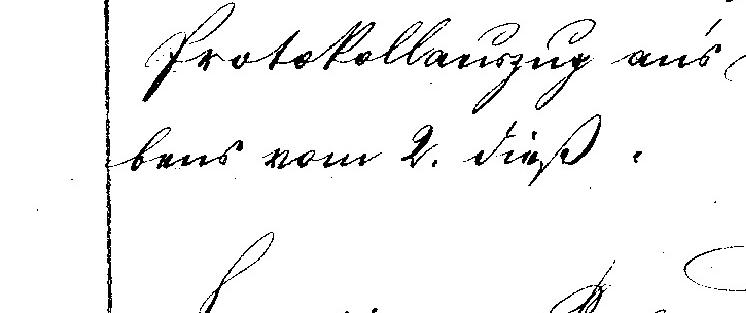 Protokollauszug aus
bens vom 2. dieß.